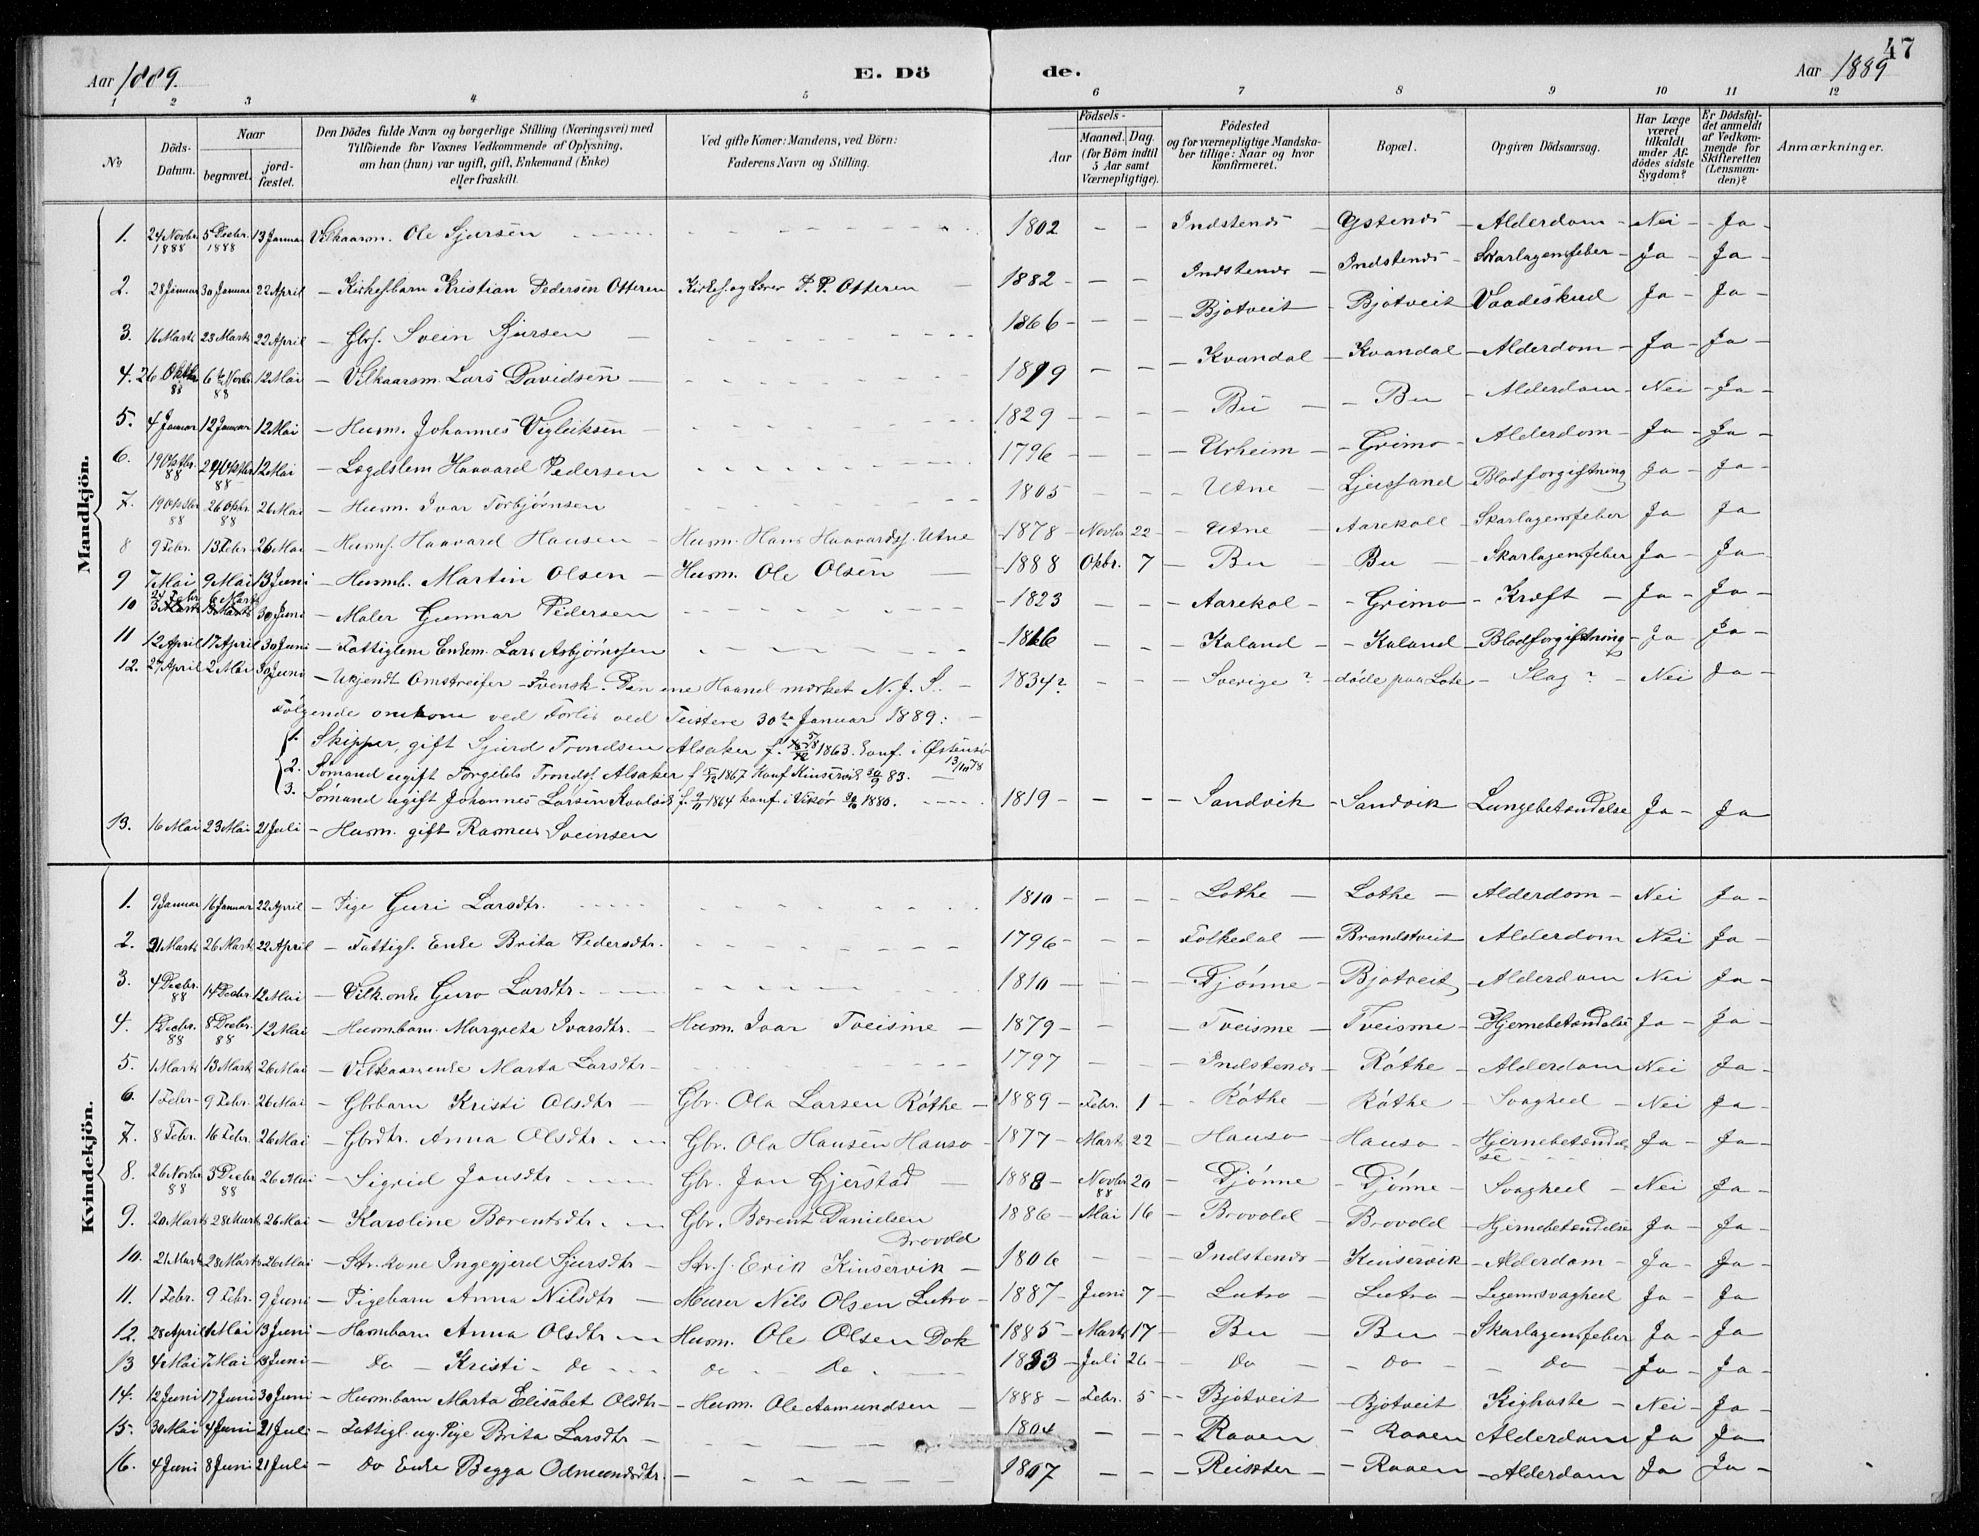 47
Aar 1889.
E. Dö
de.
Aar 1889
1 2 3 4 5 6 7 8 9 10 11 12
No
Döds-Datum.
Naar
begravet.
jord-fæstet.
Den Dödes fulde Navn og borgerlige Stilling (Næringsvei) med
Tilföiende for Voxnes Vedkommende af Oplysning,
om han (hun) var ugift, gift, Enkemand (Enke)
eller fraskilt.
Ved gifte Koner: Mandens, ved Börn:
Faderens Navn og Stilling.
Födsels-
Aar
Maaned. Dag.
(for Börn indtil
5 Aar samt
Værnepligtige).
Födested
og for værnepligtige Mandska-
ber tillige: Naar og hvor
konfirmeret.
Bopæl.
Opgiven Dödsaarsag.
Har Læge
været
tilkaldt
under Af-
dödes sidste
Sygdom?
Er Dödsfal-
det anmeldt
af Vedkom-
mende for
Skifteretten
(Lensman-
den)?
Anmærkninger.
Mandkjön.
1. 24 Novbr. 1888 5 Decbr. 1888 13 Januar Vilkaarsm. Ole Sjursen 1802 - - Indstenes Ystenes - Alderdom - Nei - Ja -
2. 28 Januar 30 Januar 22 April - Kirkesbarn Kristian Pedersen Otteren Kirkes. og Lærer P. P. Otteren 1882 - - - Indstenes - Indstenes - Skarlagensfeber - Ja - Ja -
3. 16 Marts 23 Marts 22 April - Gbrs. Svein Sjursen 1866 - - - Bjotveit - Bjotveit Vaadeskud Ja - Ja -
4. 26 Oktbr. 88 6te Novbr. 88 12 Mai - Vilkaarsm. Lars Davidsen 1819 - - - Kvandal - Kvandal - Alderdom - Ja - Ja -
5. 4 Januar 12 Januar 12 Mai - Husm. Johannes Vigleiksen 1829 - - - Bu - Bu - Alderdom - Nei - Ja -
6. 19 Oktbr. 88 24 Oktbr. 88 12 Mai - Lægdslem Haavard Pedersen 1796 - - - Urheim - Grimo - Alderdom - Ja - Ja -
7. 19 Oktbr. 88 26 Oktbr. 88 26 Mai - Husm. Ivar Torbjørnsen 1805 - - - Utne - Ljussand Blodforgiftning Ja - Ja
8 9 Febr. 13 Febr. 26 Mai - Husms. Haavard Hansen - Husm. Hans Haavardss. Utne 1878 - Novbr. 22 - Utne - Aarekoll - Skarlagensfeber Ja Ja
9 7 Mai 9 Mai 13 Juni - Husmb. Martin Olsen - Husm. Ole Olsen - 1888 Okbr. 7 - Bu - Bu - Skarlagensfeber Ja - Ja
10 24 Febr. 6 Marts 30 Juni - Maler Gunnar Pedersen - 1823 - - - Aarekol - Grimo - Kræft - Ja - Ja -
11 12 April 17 April 30 Juni - Fattiglem Enkem. Lars Asbjørnsen - 1816 - - - Kaland - Kaland - Blodforgiftning - Ja - Ja -
12. 27 April 2 Mai 30 Juni - Ukjendt Omstreifer - Svensk. Den ene Haand mærket N. J. S. - 1834? - - - Sverige? - døde paa Lote - Slag? - Nei Ja -
Følgende omkom ved Forlis ved Teistene 30te Januar 1889: -
1. Skipper, gift Sjurd Trondsen Alsaker f. 1863. konf. i Østensø 13/10 78
2. Sømand ugift Torgils Tronds. Alsaker f. 1867 Konf Kinservik 30/9 83.
3. Sømand ugift Johannes Larsen f. 9/11 1864 konf. i Vikør 1880.
13. 16 Mai 23 Mai 21 Juli - Husm. gift Rasmus Sveinsen 1819 - - - Sandvik - Sandvik Lungebetændelse Ja - Ja
Kvindekjön.
1. 9 Januar 16 Januar 22 April - Pige Guri Larsdtr. 1810 - - - Lothe - Lothe - Alderdom - Nei Ja -
2. 21 Marts 26 Marts 22 April - Fattigl. Enke Brita Pedersdtr. 1796 - - - Folkedal - Brandstveit Alderdom Nei Ja -
3. 4 Decbr. 88 14 Decbr. 12 Mai - Vilk. enke Guro Larsdtr. 1810 - - - Djønne - Bjotveit - Alderdom Nei Ja -
4. 1 Decbr. 88 8 Decbr. 88 12 Mai - Husmbarn. Margreta Ivarsdtr. - Husm. Ivar Tveisme - 1879 - - - Tveisme - Tveisme - Hjernebetændelse Ja - Ja -
5. 1 Marts 13 Marts 26 Mai - Vilkaarsenke Marta Larsdtr - 1797 - - - Indstenes Røthe - Alderdom Nei Ja -
6. 1 Febr. 9 Febr. 26 Mai - Gbrbarn Kristi Olsdtr - Gbr. Ola Larsen Røthe - 1889 - Febr. 1 - Røthe - Røthe - Svaghed - Nei Ja -
7. 8 Febr. 16 Febr. 26 Mai - Gbrdtr. Anna Olsdtr. Gbr. Ola Hansen Hauso - 1877 - Marts 22 - Hauso - Hauso - Hjernebetændelse Ja - Ja -
8. 26 Novbr. 88 3 Decbr 88 26 Mai - Sigrid Jansdtr Gbr. Jan Gjerstad - 1888 - Novbr 88 20 - Djønne - Djønne - Svaghed - Nei Ja -
9. 20 Marts 28 Marts 26 Mai - Karoline Børentsdtr. Gbr. Børent Danielsen Brovold 1886 - Mai 16 - Brovold - Brovold - Hjernebetændelse Ja - Ja -
10. 21 Marts 28 Marts 26 Mai - Str. kone Ingegjerd Sjursdtr - Str.s. Erik Kinservik - 1806 - - - Indstenes - Kinservik - Alderdom - Ja - Ja -
11. 1 Febr. 9 Febr. 9 Juni - Pigebarn Anna Nilsdtr - Murer Nils Olsen Lutro - 1887 - Juni 7 - Lutro - Lutro - Legemsvaghed Ja - Ja
12. 28 April 4 Mai 13 Juni - Husmbarn Anna Olsdtr - Husm. Ole Olsen Dok 1885 - Marts 17 - Bu - Bu - Skarlagensfeber Ja - Ja
13 4 Mai 7 Mai 13 Juni - Do - Kristi - Do - Do - Do 1883 - Juli 26 - Do - Do - Do - Ja - Ja -
14. 12 Juni 17 Juni 30 Juni - Husmbarn Marta Elisabet Olsdtr - Husm. Ole Aamundsen - 1888 - Febr. 5 - Bjotveit - Bjotveit Kighoste - Nei - Ja -
15. 30 Mai 4 Juni 21 Juli - Fattigl. ug. Pige Brita Larsdtr - 1804 - - - Raaen - Raaen Alderdom Ja Ja -
16. 4 Juni 8 Juni 21 Juli - Do Enke Begga Odmundsdtr. - 1807 - - - Reisæter - Raaen - Alderdom Ja Ja -